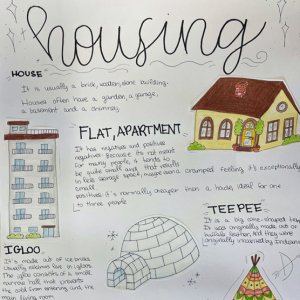 housing
HOUSE
It is usually a brick, wooden, stone building.
Houses often have a garden, a garage,
a basement and a chimney.
FLAT, APARTMENT
It has negatives and positives
negatives: Because it's not meant
for many people, it tends to
be quite small and that results
in less storage space, maybe even a cramped feeling, it's exceptionally
small
positives: it's normally cheaper than a house, ideal for one
to three people
TEEPEE
It is a big cone-shaped tent
It was originally made out of
buffalo leather, and they were
originally invented by Indians
IGLOO
It's made out of ice bricks
Usually eskimos live in igloos.
The igloo consists of a small
narrow hall that prevents
the cold from entering and the
main living room.